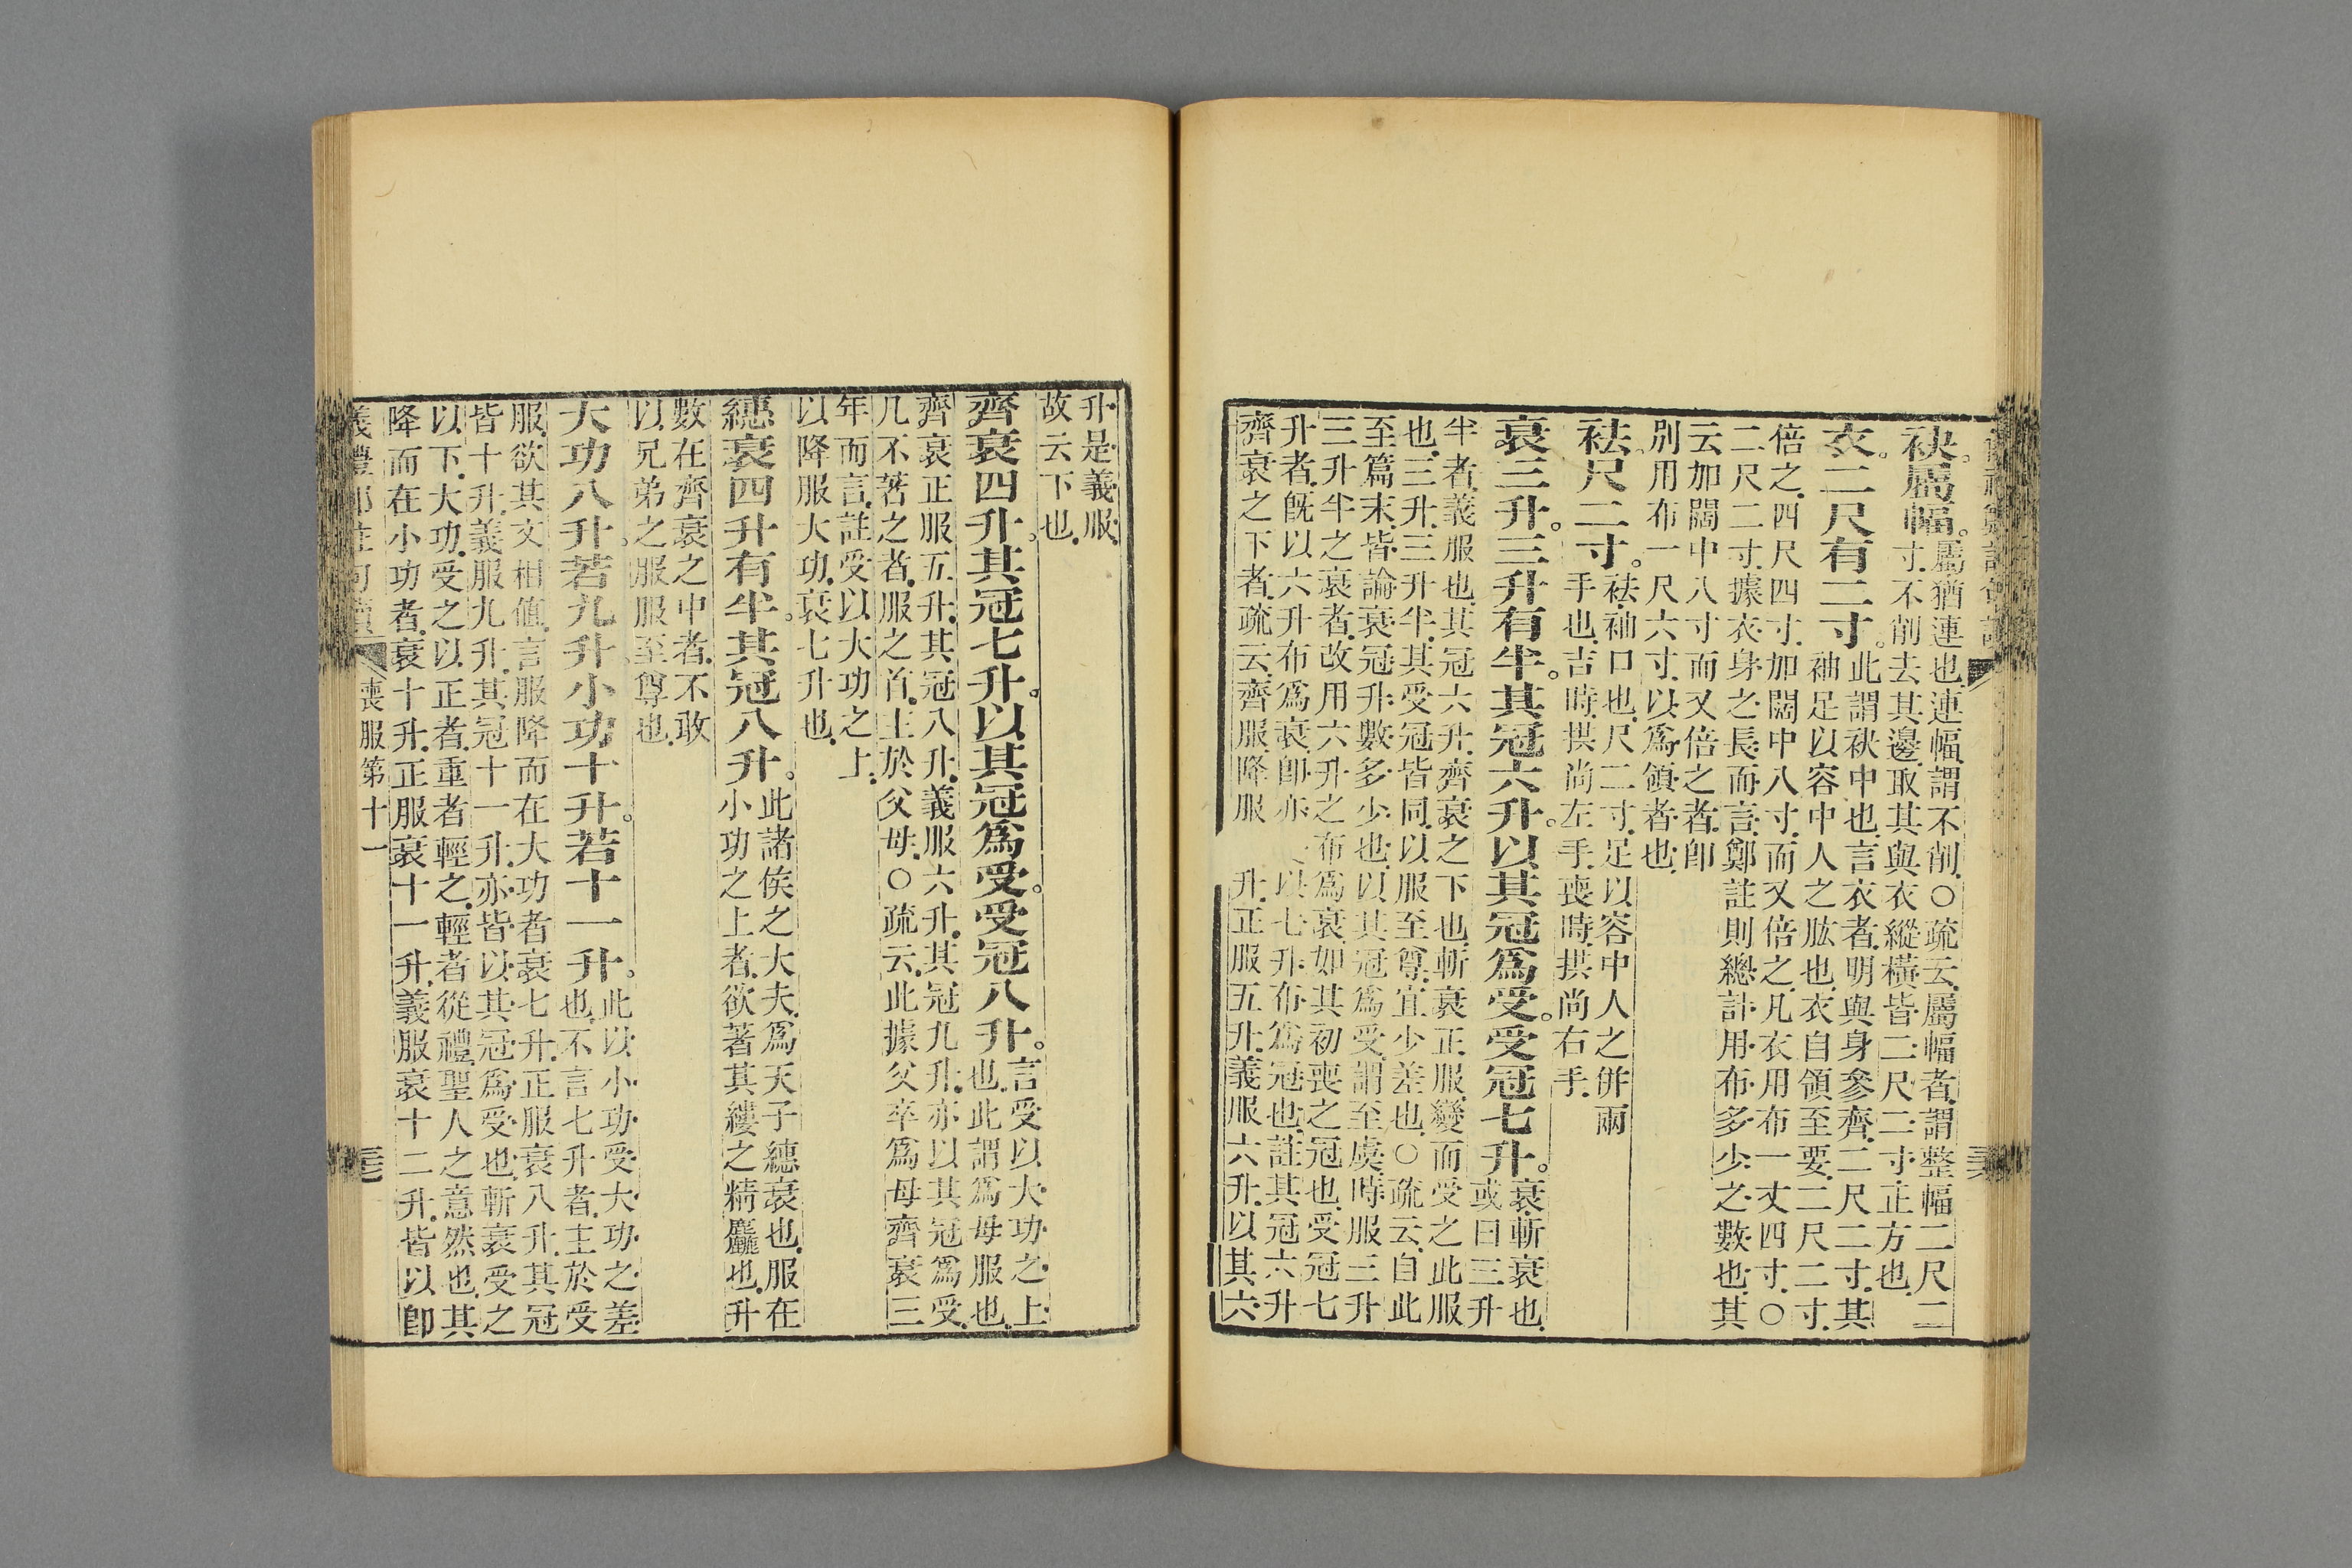 袂屬幅。屬猶連也連幅謂不削○疏云屬幅者謂整幅二尺二
寸不削去其邊取其與衣縱橫皆二尺二寸正方也
衣二尺有二寸。此謂袂中也言衣者明與身參齊二尺二寸其
袖足以容中人之肱也衣自領至要二尺二寸
倍之四尺四寸加闊中八寸而又倍之凡衣用布一丈四寸○
二尺二寸據衣身之長而言鄭註則總計用布多少之數也其
云加闊中八寸而又倍之者卽
別用布一尺六寸以爲領者也
袪尺二寸。袪袖口也尺二寸足以容中人之倂兩
手也吉時拱尚左手喪時拱尚右手
衰三升。三升有半。其冠六升。以其冠爲受。受冠七升。衰斬衰也
或曰三升
半者義服也其冠六升齊衰之下也斬衰正服變而受之此服
也三升三升半其受冠皆同以服至尊宜少差也○疏云自此
至篇末皆論衰冠升數多少也以其冠爲受謂至虞時服三升
三升半之衰者改用六升之布爲衰如其初喪之冠也受冠七
升者旣以六升布爲衰卽亦以七升布爲冠也註其冠六升
齊衰之下者疏云齊服降服 升正服五升義服六升以其六
升是義服
故云下也
齊衰四升。其冠七升。以其冠爲受。受冠八升。言受以大功之上
也此謂爲母服也
齊衰正服五升其冠八升義服六升其冠九升亦以其冠爲受
凡不著之者服之首主於父母○疏云此據父卒爲母齊衰三
年而言註受以大功之上
以降服大功衰七升也
繐衰四升有半。其冠八升。此諸侯之大夫爲天子繐衰也服在
小功之上者欲著其縷之精麤也升
數在齊衰之中者不敢
以兄弟之服服至尊也
大功八升。若九升。小功十升。若十一升。此以小功受大功之差
也不言七升者主於受
服欲其文相值言服降而在大功者衰七升正服衰八升其冠
皆十升義服九升其冠十一升亦皆以其冠爲受也斬衰受之
以下大功受之以正者重者輕之輕者從禮聖人之意然也其
降而在小功者衰十升正服衰十一升義服衰十二升皆以卽
喪服第十一